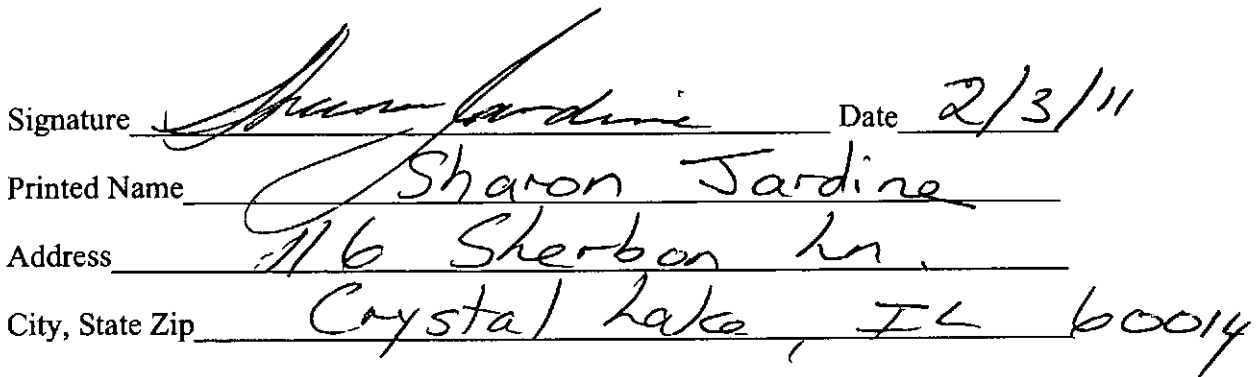 Signature Sharon Jardine Date 2/3/11
Printed Name Sharon Jardine
Address 116 Sherbon Ln.
City, State Zip Crystal Lake, IL 60014